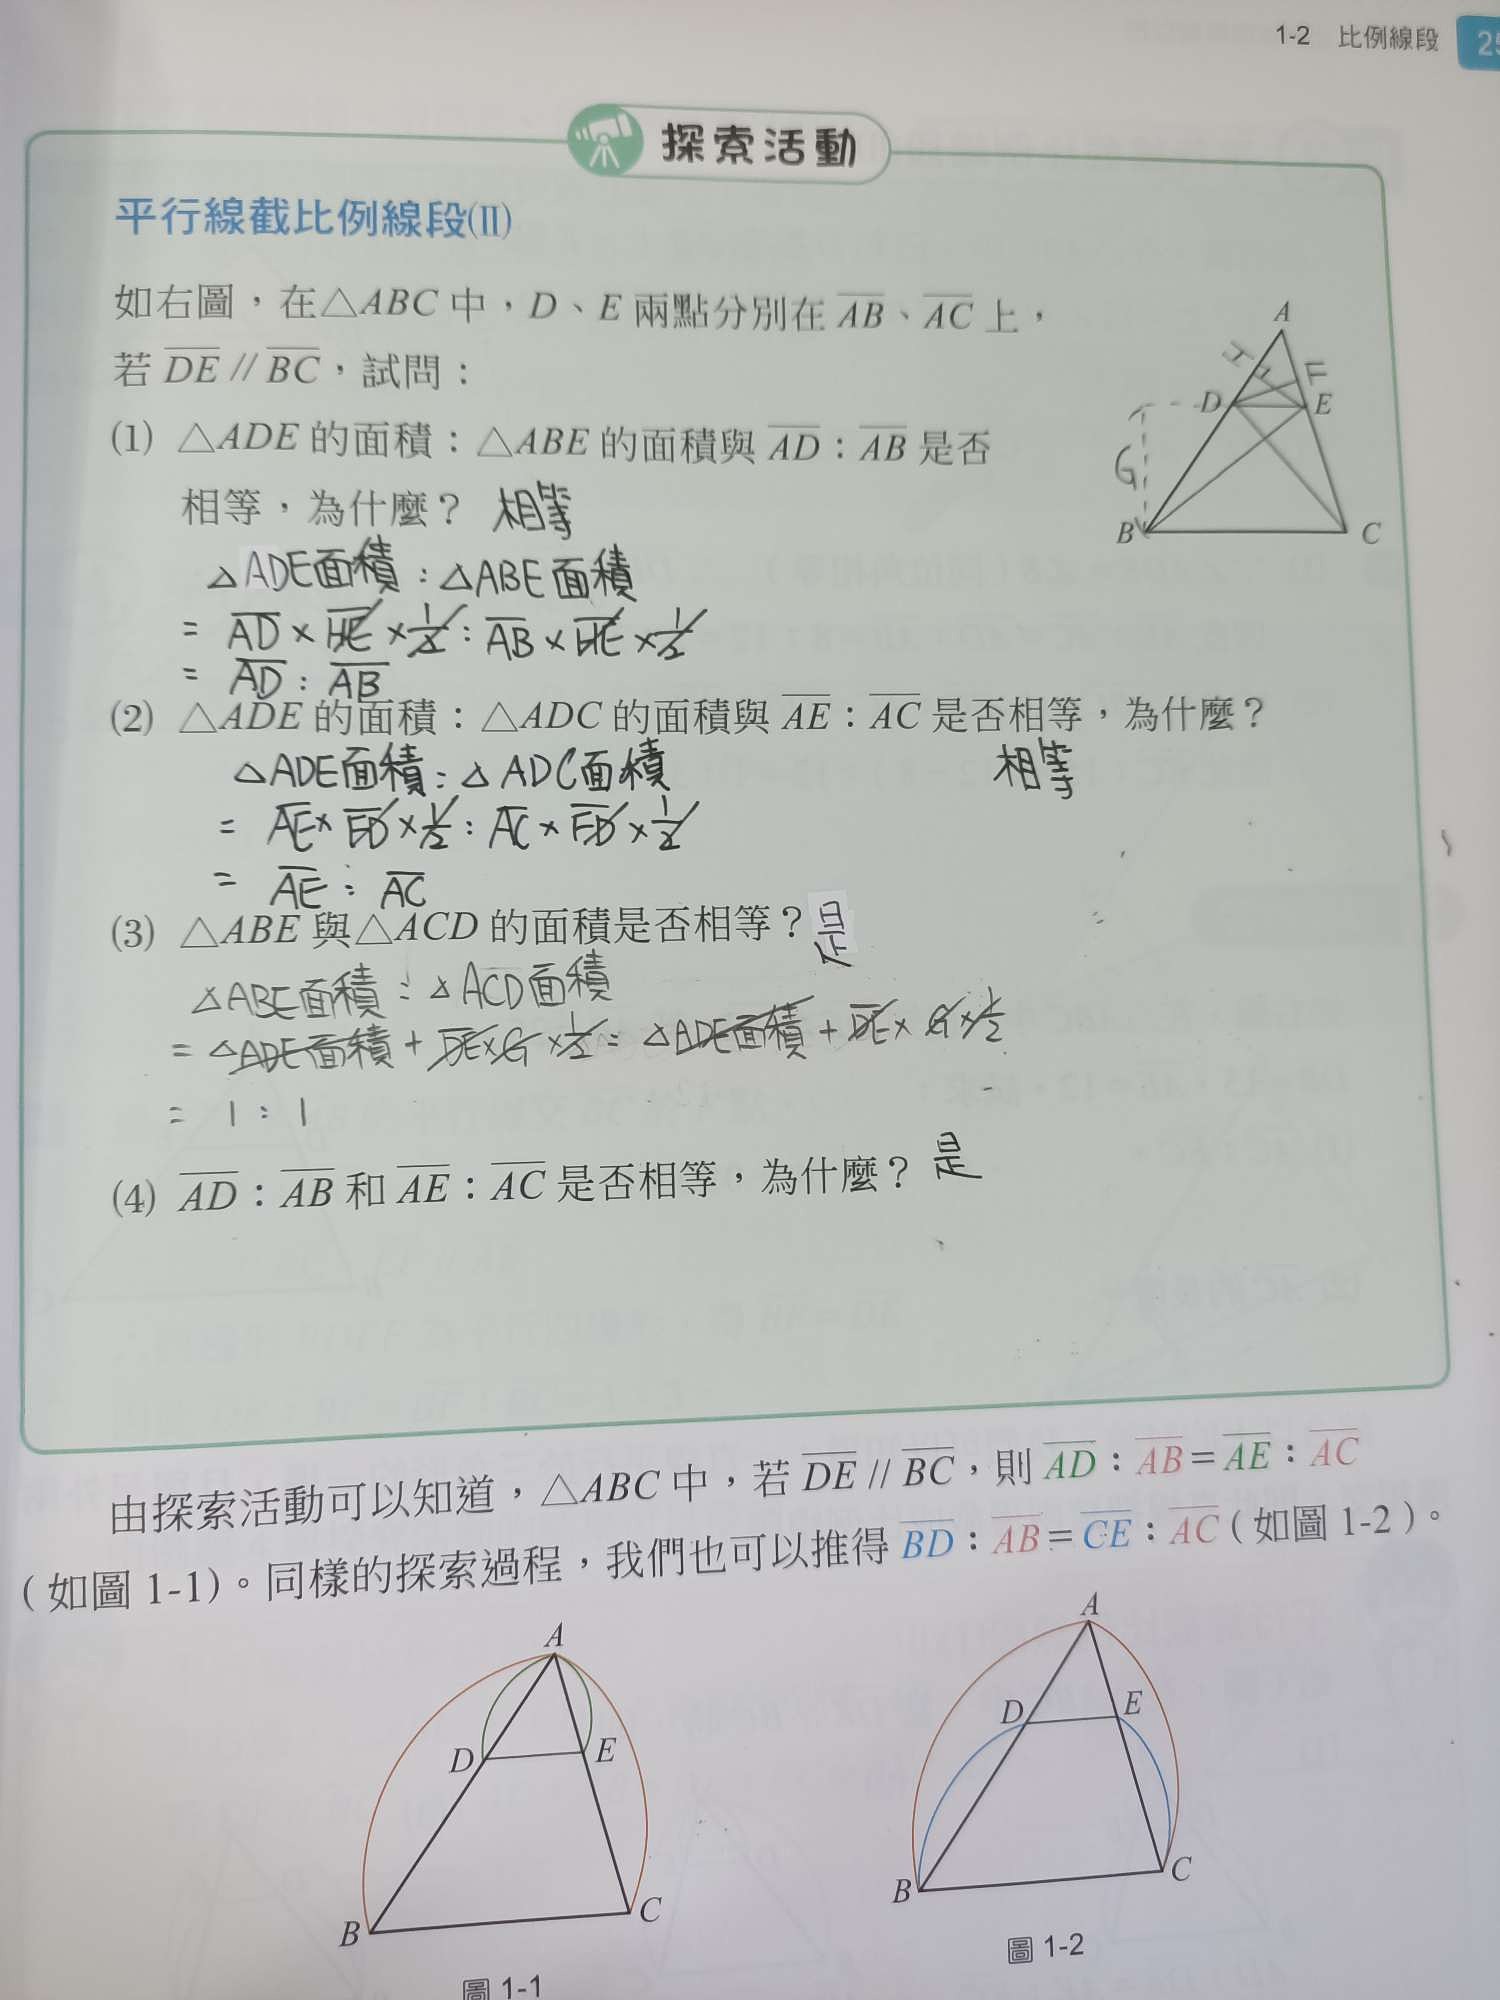 1-2 比例線段 25
探索活動
平行線截比例線段(II)
如右圖，在△ABC 中，D、E 兩點分別在 AB、AC 上，
若 DE // BC，試問：
(1) △ADE 的面積：△ABE 的面積與 AD：AB 是否
相等，為什麼？ 相等
△ADE面積：△ABE面積
= AD × HE × 1/2 : AB × HE × 1/2
= AD : AB
(2) △ADE 的面積：△ADC 的面積與 AE：AC 是否相等，為什麼？
相等
△ADE面積：△ADC面積
= AE × FD × 1/2 : AC × FD × 1/2
= AE : AC
(3) △ABE 與△ACD 的面積是否相等？ 是
△ABE面積：△ACD面積
= △ADE面積 + DE × G × 1/2 : △ADE面積 + DE × G × 1/2
= 1 : 1
(4) AD：AB 和 AE：AC 是否相等，為什麼？ 是
A
H
F
D
E
G
B
C
由探索活動可以知道，△ABC 中，若 DE // BC，則 AD：AB = AE：AC
（如圖 1-1）。同樣的探索過程，我們也可以推得 BD：AB = CE：AC（如圖 1-2）。
A
D
E
B
C
圖 1-1
A
D
E
B
C
圖 1-2